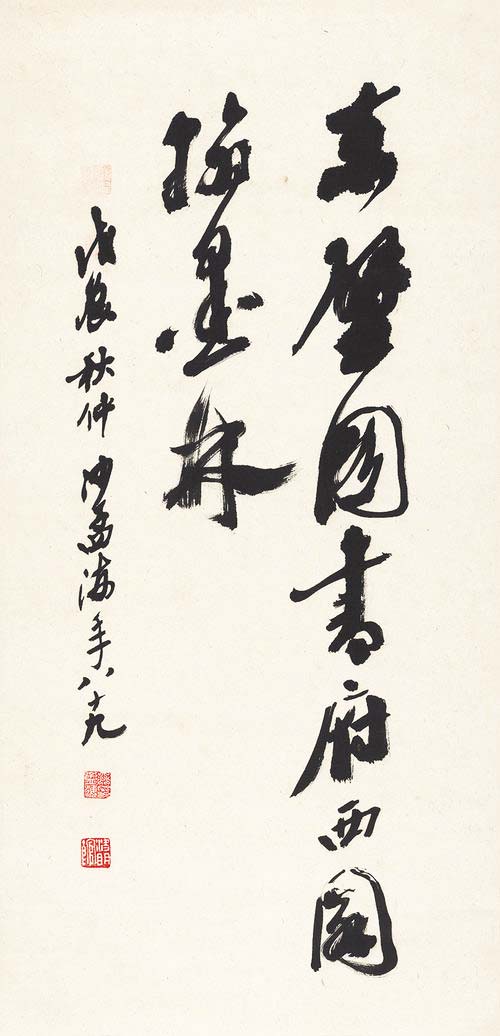 東壁圖書府西園
翰墨林
戊辰秋仲沙孟海年八十九